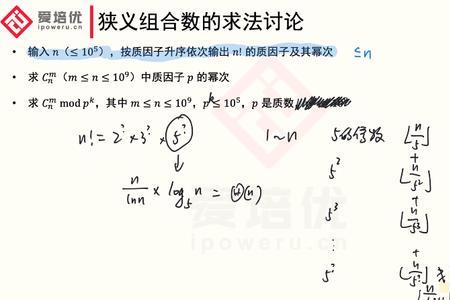 爱培优
ipoweru.cn
狭义组合数的求法讨论
• 输入 n（≤ 10⁵），按质因子升序依次输出 n! 的质因子及其幂次 ≤n
• 求 Cₙᵐ（m ≤ n ≤ 10⁹）中质因子 p 的幂次
• 求 Cₙᵐ mod pᵏ，其中 m ≤ n ≤ 10⁹，pᵏ ≤ 10⁵，p 是质数
n! = 2^? × 3^? × 5^? 1~n 5的倍数 ⌊n/5⌋
+
5² ⌊n/5²⌋
n/ln n × log₅n = Θ(n)
+
5³ ⌊n/5³⌋
⋮
+
5^? ⌊n/5^?⌋
爱培优
ipoweru.cn